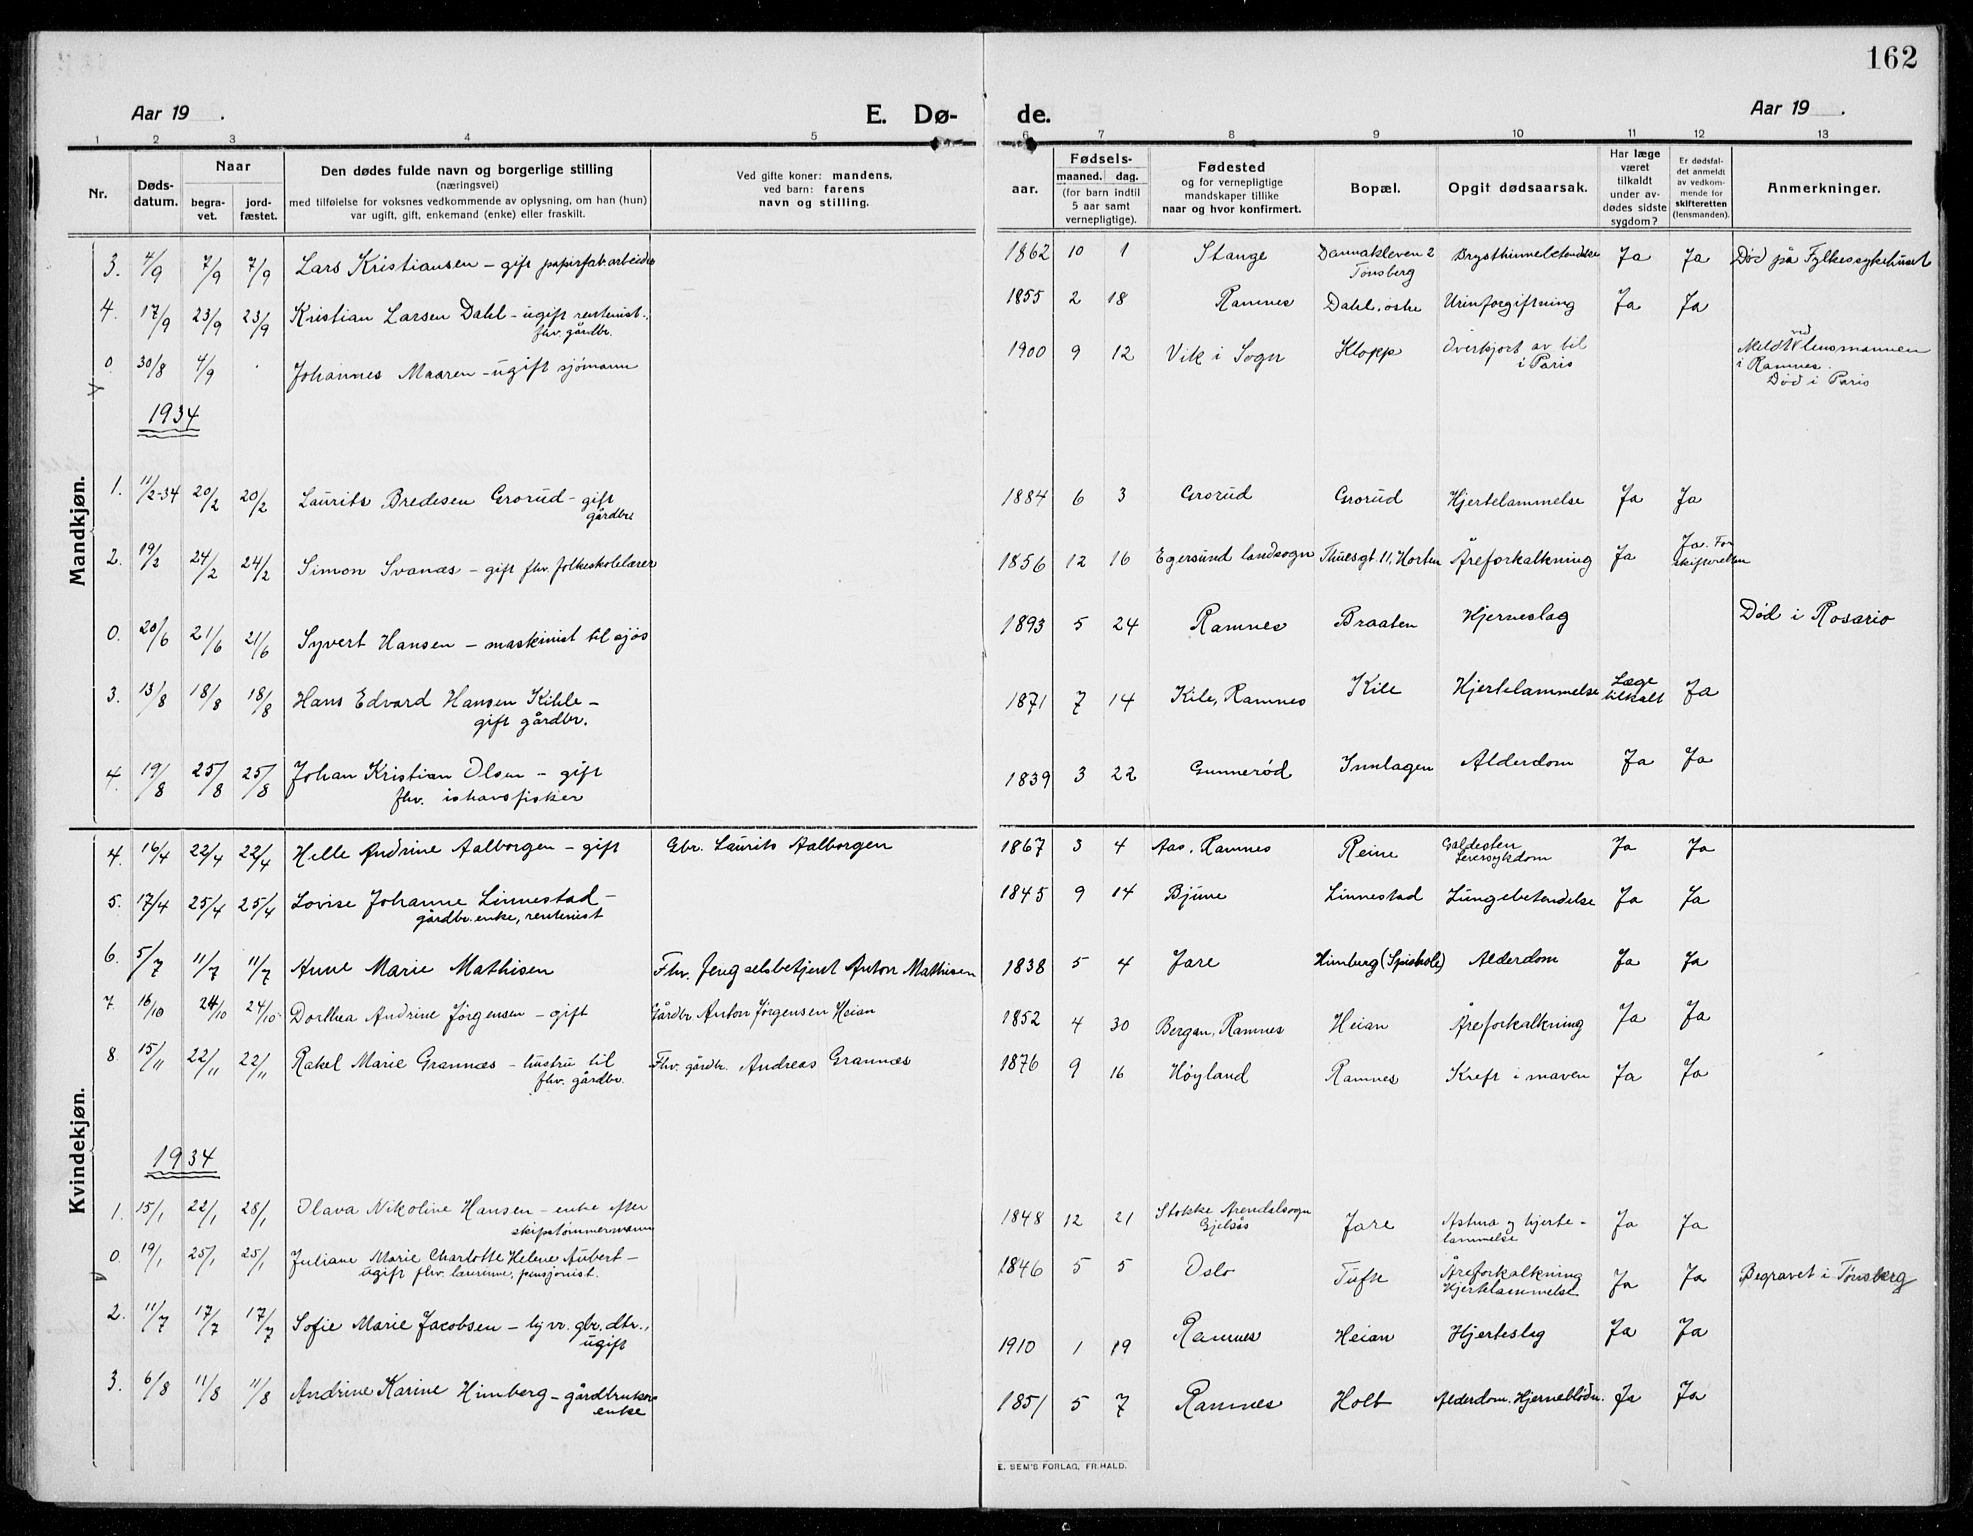 162
Aar 19 .
E. Dø-
de.
Aar 19 .
1 2 3 4 5 6 7 8 9 10 11 12 13
Nr.
Døds-
datum.
Naar
begra-
vet.
jord-
fæstet.
Den dødes fulde navn og borgerlige stilling
(næringsvei)
med tilføielse for voksnes vedkommende av oplysning, om han (hun)
var ugift, gift, enkemand (enke) eller fraskilt.
Ved gifte koner: mandens,
ved barn: farens
navn og stilling.
aar.
Fødsels-
maaned. dag.
(for barn indtil
5 aar samt
vernepligtige).
Fødested
og for vernepligtige
mandskaper tillike
naar og hvor konfirmert.
Bopæl.
Opgit dødsaarsak.
Har læge
været
tilkaldt
under av-
dødes sidste
sygdom?
Er dødsfal-
det anmeldt
av vedkom-
mende for
skifteretten
(lensmanden).
Anmerkninger.
Mandkjøn.
3. 4/9 7/9 7/9 Lars Kristiansen – gift papirfab.arbeider 1862 10 1 Stange Dannakleven 2 Tønsberg Brysthinnebetendelse Ja Ja Død på Fylkessykehuset
4. 17/9 23/9 23/9 Kristian Larsen Dahl – ugift rentenist., fhv. gårdbr. 1855 2 18 Ramnes Dahl, østre Urinforgiftning Ja Ja
0. 30/8 4/9 . Johannes Maaren – ugift sjømann 1900 9 12 Vik i Sogn Klopp Overkjørt av bil i Paris Meldt ved lensmannen i Ramnes. Død i Paris
1934
1. 11/2-34 20/2 20/2 Laurits Bredesen Grorud – gift gårdbr. 1884 6 3 Grorud Grorud Hjertelammelse Ja Ja
2. 19/2 24/2 24/2 Simon Svanæs – gift fhv. folkeskolelærer 1856 12 16 Egersund landsogn Thuesgt. 11, Horten Åreforkalkning Ja Ja. For skifteretten
0. 20/6 21/6 21/6 Syvert Hansen – maskinist til sjøs 1893 5 24 Ramnes Braaten Hjerneslag Død i Rosario
3. 13/8 18/8 18/8 Hans Edvard Hansen Kihle – gift gårdbr. 1871 7 14 Kile, Ramnes Kile Hjertelammelse Læge tilkalt Ja
4. 19/8 25/8 25/8 Johan Kristian Olsen – gift fhv. ishavsfisker 1839 3 22 Gunnerød Innlagen Alderdom Ja Ja
Kvindekjøn.
4. 16/4 22/4 22/4 Helle Andrine Aalborgen – gift Gbr. Laurits Aalborgen 1867 3 4 Aas, Ramnes Reine Galdesten Leversykdom Ja Ja
5. 17/4 25/4 25/4 Lovise Johanne Linnestad – gårdbr.enke, rentenist 1845 9 14 Bjune Linnestad Lungebetendelse Ja Ja
6. 5/7 11/7 11/7 Anne Marie Mathisen Fhv. fengselsbetjent Anton Mathisen 1838 5 4 Jare Himberg (Spishole) Alderdom Ja Ja
7. 16/10 24/10 24/10 Dorthea Andrine Jørgensen – gift Gårdbr. Anton Jørgensen Heian 1852 4 30 Bergan, Ramnes Heian Åreforkalkning Ja Ja
8. 15/11 22/11 22/11 Rakel Marie Grannæs – hustru til fhv. gårdbr. Fhv. gårdbr. Andreas Grannæs 1876 9 16 Høyland Ramnes Kreft i maven Ja Ja
1934
1. 15/1 22/1 28/1 Olava Nikoline Hansen – enke efter skipstømmermann 1848 12 21 Stokke Arendalsogn Gjelsås Jare Astma og hjerte-lammelse Ja Ja
0. 19/1 25/1 25/1 Juliane Marie Charlotte Helene Aubert – ugift fhv. lærerinne, pensjonist. 1846 5 5 Oslo Tufte Åreforkalkning Hjertelammelse Ja Ja Begravet i Tønsberg
2. 11/7 17/7 17/7 Sofie Marie Jacobsen – hjvv. gbr. dtr., ugift 1910 1 19 Ramnes Heian Hjerteslag Ja Ja
3. 6/8 11/8 11/8 Andrine Karine Himberg – gårdbruker enke 1851 5 7 Ramnes Holt Alderdom. Hjerneblødn. Ja Ja
E. SEM'S FORLAG, FR.HALD.